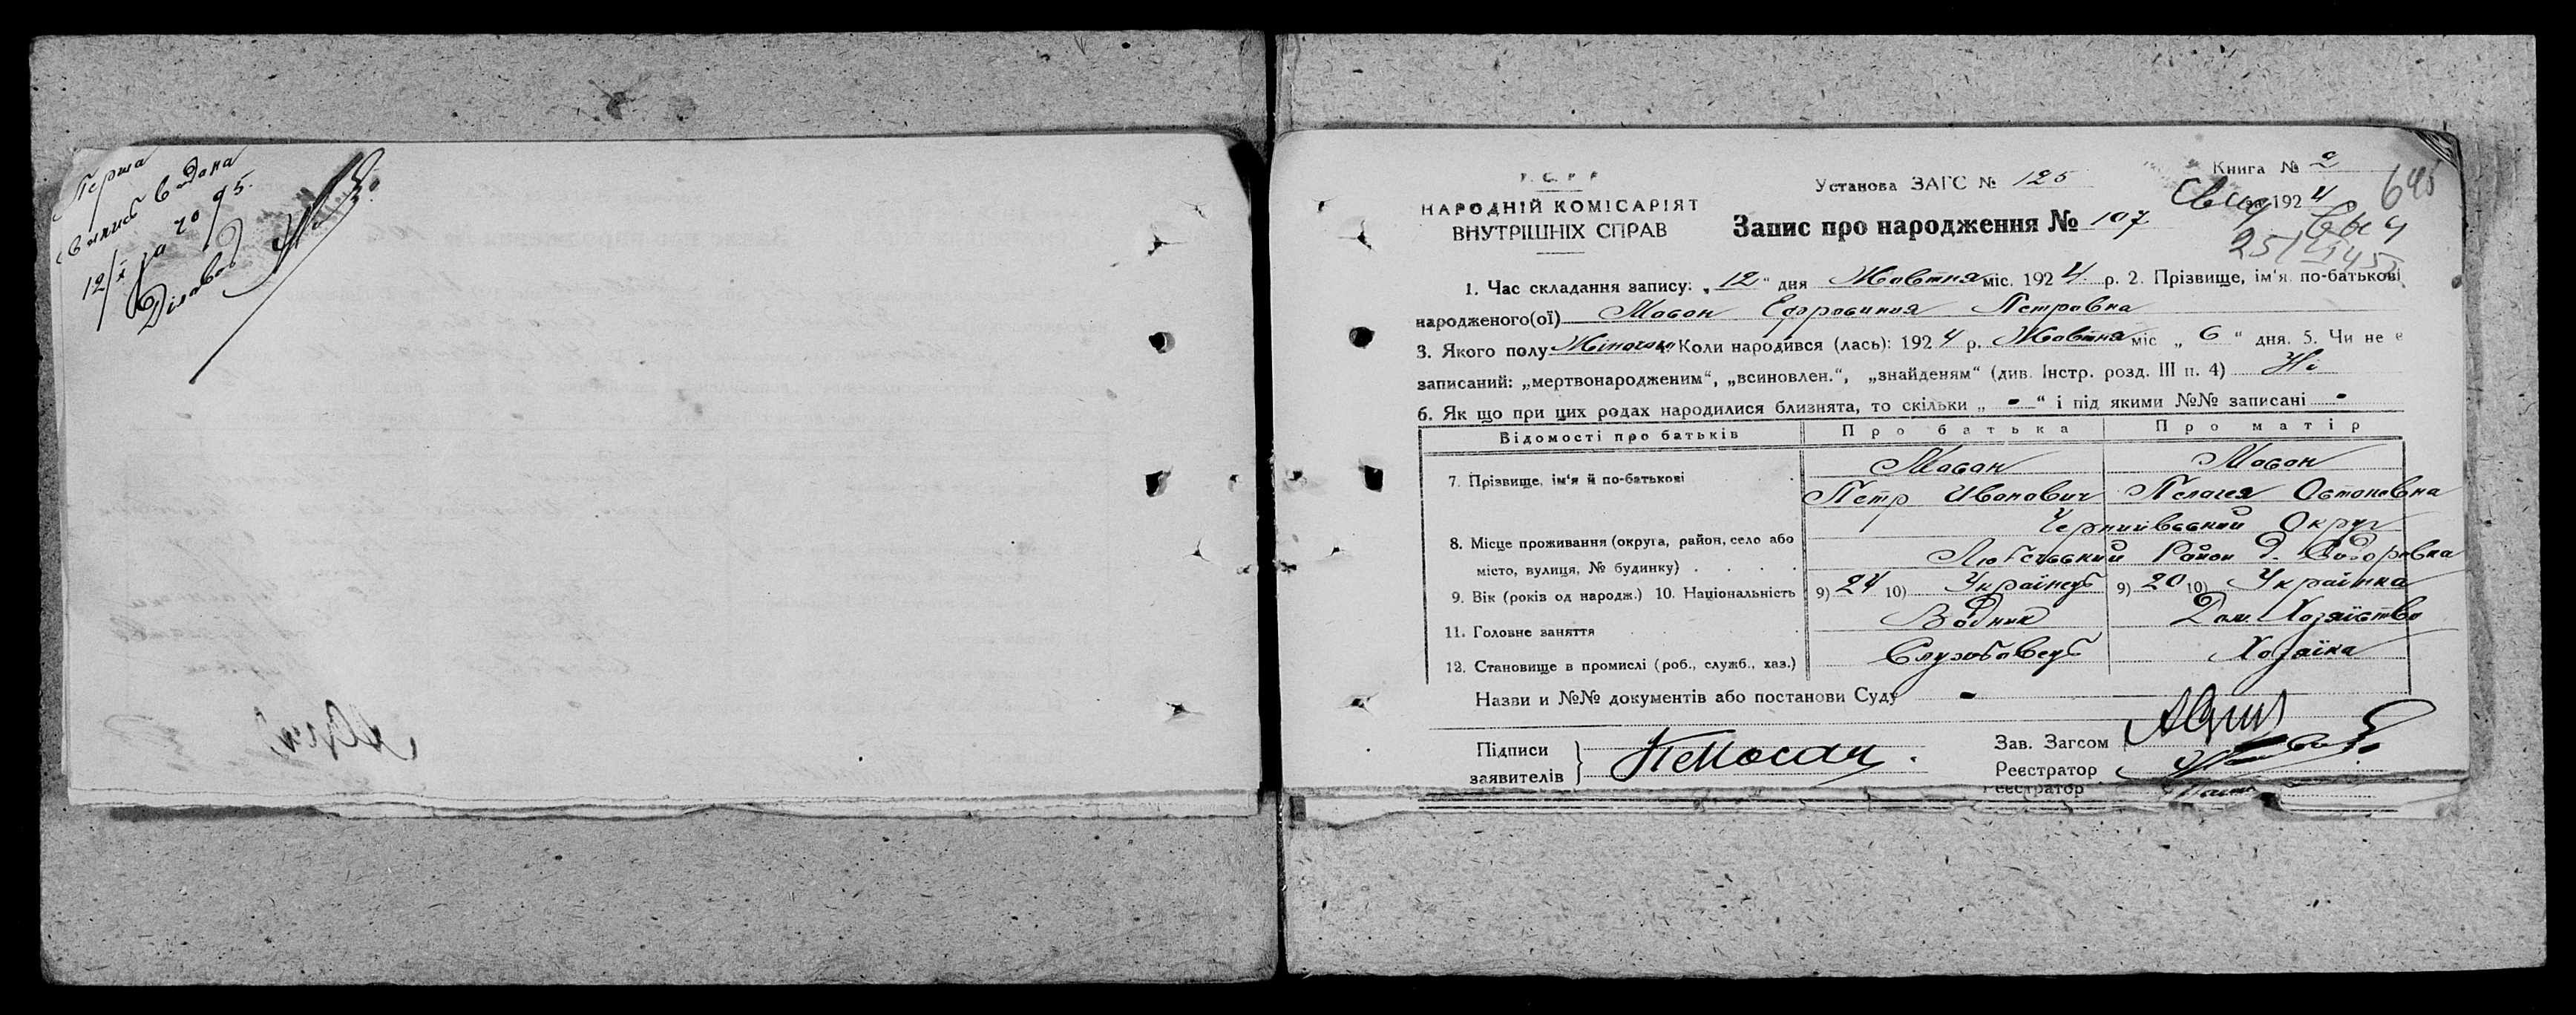 Перша
випись видана
12/X за № 95.
У.С.Р.Р.
НАРОДНІЙ КОМІСАРІЯТ
ВНУТРІШНІХ СПРАВ
Установа ЗАГС № 125
Книга № 2
за 1924 р.
645
Запис про народження № 107
1. Час складання запису: „12" дня Жовтня міс. 1924 р. 2. Прізвище, ім'я по-батькові
народженого(ої) Мосан Ефросиния Петровна
3. Якого полу Жіночого 4. Коли народився (лась): 1924 р. Жовтня міс „ 6 " дня. 5. Чи не є
записаний: „мертвонародженим", „всиновлен.", „знайденям" (див. Інстр. розд. III п. 4) Ні
6. Як що при цих родах народилися близнята, то скільки „ - " і під якими №№ записані -
Відомості про батьків Про батька Про матір
7. Прізвище, ім'я й по-батькові Мосан Мосан
Петр Иванович Пелагея Остаповна
8. Місце проживання (округа, район, село або Чернигівський Округ
місто, вулиця, № будинку) Любецький Район д.
9. Вік (років од народж.) 10. Національність 9) 24 10) Українець 9) 20 10) Українка
11. Головне заняття Водник Дом. Хозяйство
12. Становище в промислі (роб., служб., хаз.) Службовець Хозяїка
Назви и №№ документів або постанови Суду -
Підписи
заявителів П Мосан.
Зав. Загсом
Реєстратор
Реєстратор